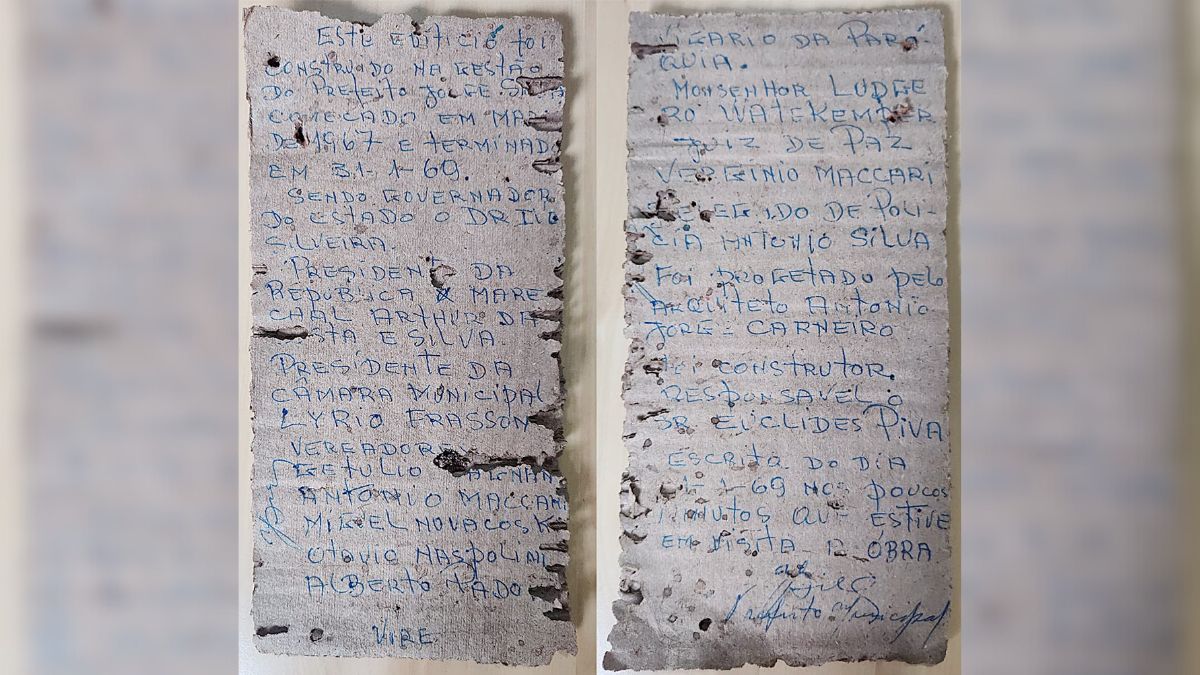 ESTE EDIFICIO foi
CONSTRUIDO NA GESTÃO
DO PREFEITO JORGE
COMEÇADO EM
DE 1967 E TERMINADO
EM 31-1-69.
SENDO GOVERNADOR
DO ESTADO O DR IVO
SILVEIRA.
PRESIDENTE DA
REPUBLICA MARE
CHAL ARTHUR DA
E SILVA
PRESIDENTE DA
CÂMARA MUNICIPAL
LYRIO FRASSON
VEREADORES
GETULIO
ANTONIO MACCARI
MIGUEL NOVACOSK
OTAVIO NASPOLINI
ALBERTO
VIRE
VIGARIO DA PARÓ
QUIA.
MONSENHOR LUDGE
RO WATEKEMPER
JUIZ DE PAZ
VERGINIO MACCARI
DE POLI-
CIA ANTONIO SILVA
FOI PROGETADO PELO
ARQUITETO ANTONIO
JORGE CARNEIRO
foi CONSTRUTOR.
RESPONSAVEL O
SR EUCLIDES PIVA
ESCRITA DO DIA
1-69 NOS POUCOS
MINUTOS QUE ESTIVE
EM VISITA OBRA
Prefeito Municipal